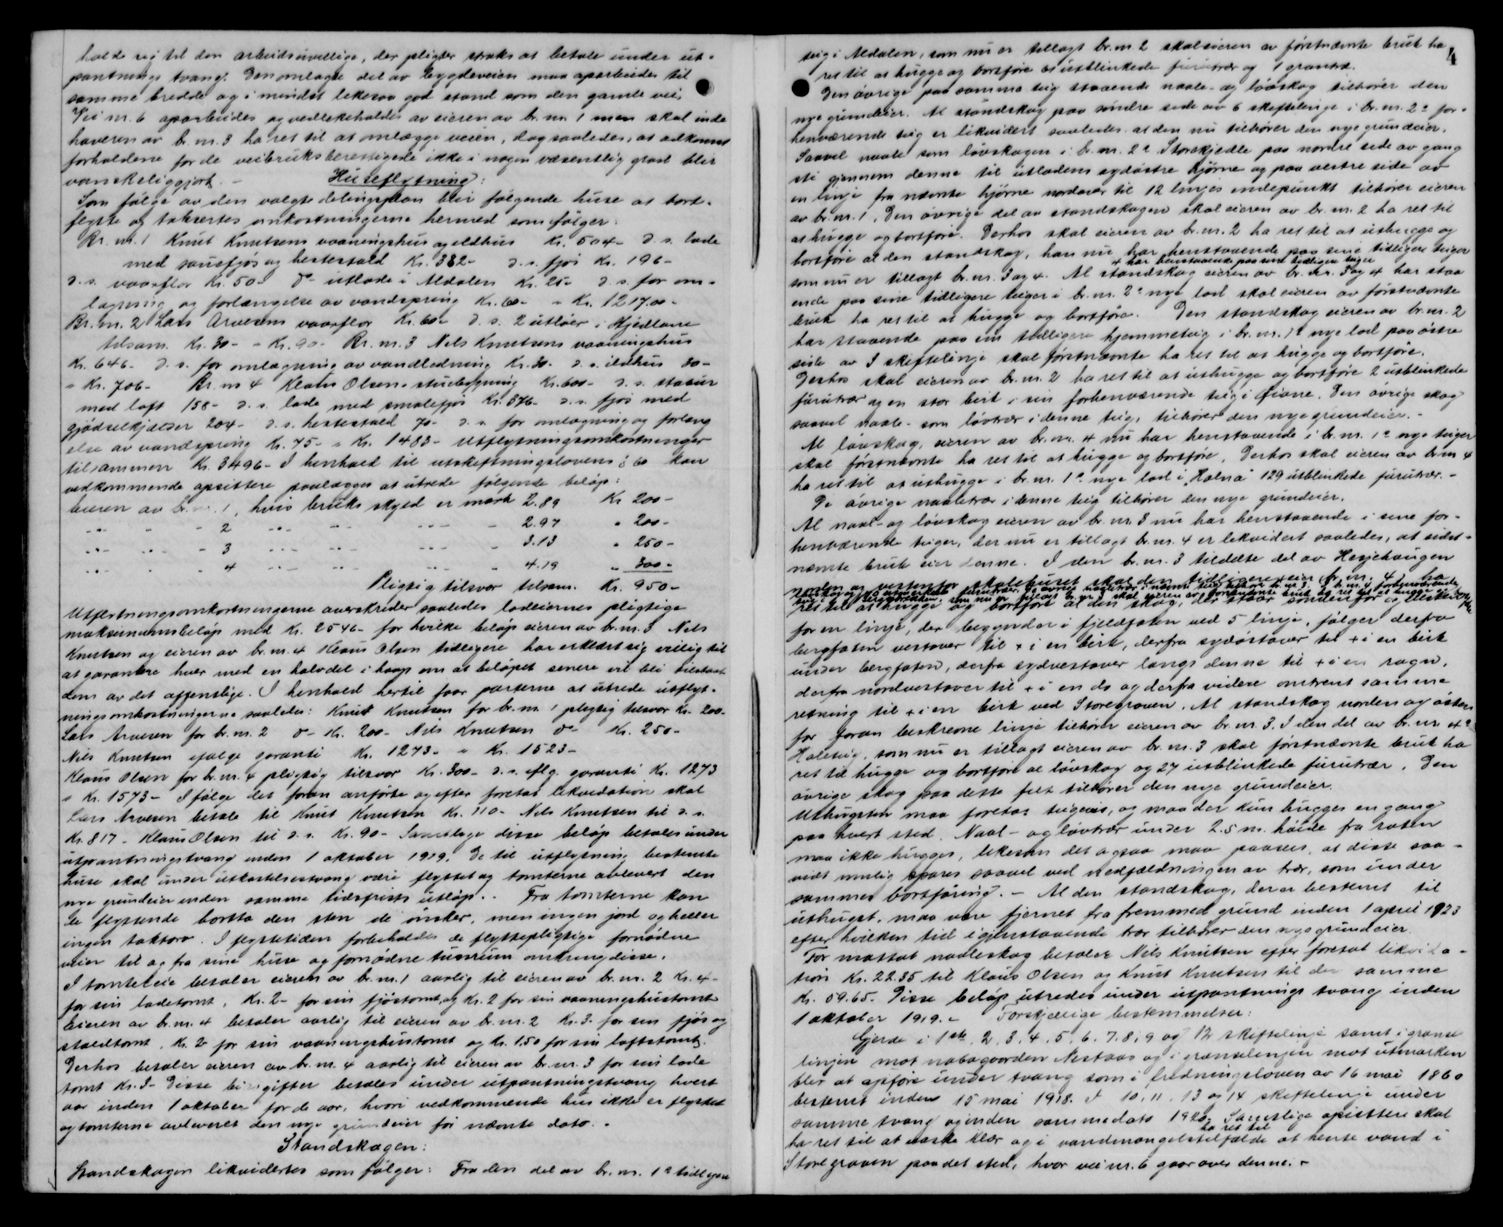 holde sig til den arbeidsuvillige, der pligter straks at betale under ut-
pantnings tvang. Den omlagte del av bygdeveien maa oparbeides til
samme bredde og i mindst likesaa god stand som den gamle vei,
Vei nr. 6 oparbeides og vedlikeholdes av eieren av br. nr. 1 men skal inde
haveren av br. nr. 3 ha ret til at omlægge veien, dog saaledes, at adkomst
forholdene for de veibruksberettigede ikke i nogen væsentlig grad blir
vanskeliggjort. - Huseflytning:
Som følge av den valgte delingsplan blir følgende huse at bort-
flytte og taksertes omkostningerne hermed som følger:
Br. nr. 1 Knut Knutsens vaaningshus og eldhus Kr. 504- d. s. lade
med sauefjøs og hestestald Kr. 382- d. s. fjøs Kr. 196-
d. s. vaaaflor Kr. 50- do utlade i Aldalen Kr. 25- d. s. for om-
lægning og forlængelse av vandspring Kr. 60- = Kr. 1217,00-
Br. nr. 2 Lars Arvesens vaarflor Kr. 60- d. s. 2 utløer i Kjedlane
tilsam. Kr. 30- = Kr. 90- Br. nr. 3 Nils Knutsens vaaningshus
Kr. 646- d. s. for omlægning av vandledning Kr. 30- d. s. ildhus 30-
= Kr. 706- Br. nr 4 Klaus Olsens stuebygning Kr. 600- d. s. stabur
med loft 158- d. s. lade med smalefjøs Kr. 376- d. s. fjøs med
gjødselkjelder 204- d. s. hestestald 70- d. s. for omlægning og forlæng
else av vandspring Kr. 75- = Kr. 1483- Utflytningsomkostninger
tilsammen Kr. 3496- I henhold til utskiftningslovens § 60 kan
vedkommende opsittere paalægges at utrede følgende beløp:
Eieren av br. nr. 1, hvis bruks skyld er mark 2.89 Kr 200-
" - " - " - 2 " - " - " - 2.97 " 200-
" - " - " - 3 " - " - " - 3.13 " 250-
" - " - " - 4 " - " - " - 4.19 " 300-
Pligtig tilsvar tilsam. Kr. 950-
Utflytningsomkostningerne overskrider saaledes lodeiernes pligtige
maksimumsbeløp med Kr. 2546- for hvilke beløp eieren av br. nr. 3 Nils
Knutsen og eieren av br. nr. 4 Klaus Olsen tidligere har erklært sig villig til
at garantere hver med en halvdel i haap om at beløpet senere vil bli tilstaat
dem av det offentlige. I henhold hertil faar parterne at utrede utflyt-
ningsomkostningerne saaledes: Knut Knutsen for br. nr. 1 pligtig tilsvar Kr. 200-
Lars Arvesen for br. nr. 2 do Kr. 200- Nils Knutsen do Kr. 250-
Nils Knutsen ifølge garanti Kr. 1273- = Kr. 1523-
Klaus Olsen for br. nr. 4 pligtig tilsvar Kr. 300- d. s. iflg. garanti Kr. 1273
= Kr. 1573- Ifølge det foran anførte og efter foretat likvidation skal
Lars Arvesen betale til Knut Knutsen Kr. 110- Nils Knutsen til d. s.
Kr. 817- Klaus Olsen til d. s. Kr. 90- Samtlige disse beløp betales under
utpantningstvang inden 1 oktober 1919. De til utflytning bestemte
huse skal under utkastelsestvang være flyttet og tomterne avlevert den
nye grundeier inden samme tidsfrists utløp. - Fra tomterne kan
de flyttende bortta den sten de ønsker, men ingen jord og heller
ingen taktorv. I flyttetiden forbeholdes de flyttepligtige fornødne
veier til og fra sine huse og fornødne tunrum omkring disse.
I tomteleie betaler eieren av br. nr. 1 aarlig til eieren av br. nr. 2 Kr. 4-
for sin ladetomt, Kr. 2- for sin fjøstomt, og Kr. 2 for sin vaaningshustomt
Eieren av br. nr. 4 betaler aarlig til eieren av br. nr. 2 Kr. 3- for sin fjøs og
staldtomt, Kr. 2- for sin vaaningshustomt og Kr. 1.50 for sin loftstomt.
Derhos betaler eieren av br. nr. 4 aarlig til eieren av br. nr. 3 for sin lade
tomt Kr. 3- Disse leieavgifter betales under utpantningstvang hvert
aar inden 1 oktober for de aar, hvori vedkommende hus ikke er flyttet
og tomterne avleveret den nye grundeier før nævnte dato. -
Standskogen:
Standskogen likvidertes som følger: Fra den del av br. nr. 1a tidligere
4
teig i Aldalen, som nu er tillagt br. nr 2 skal eieren av førstnævnte bruk ha
ret til at hugge og bortføre 61 utblinkede furutrær og 1 grantræ.
Den øvrige paa samme teig staaende naale- og løvskog tilhører den
nye grundeier. Al standskog paa søndre side av 6 skiftelinje i br. nr. 2a for-
henværende teig er likvidert saaledes at den nu tilhører den nye grundeier.
Saavel naale som løvskogen i br. nr. 2a Storekjedle paa nordre side av gang
sti gjennem denne til utladens sydøstre hjørne og paa vestre side av
en linje fra nævnte hjørne nordover til 12 linjes endepunkt tilhører eieren
av br. nr. 1. Den øvrige del av standskogen skal eieren av br. nr. 2 ha ret til
at hugge og bortføre. Derhos skal eieren av br. nr. 2 ha ret til at uthugge og
bortføre al den standskog, han nu har henstaaende paa sine tidligere teiger
som nu er tillagt br. nr. 3 og 4. Al standskog eieren av br. nr. 3 og 4 har staa
+ har henstaaende paa sine tidligere teiger
ende paa sine tidligere teiger i br. nr. 2a nye lod skal eieren av førstnævnte
bruk ha ret til at hugge og bortføre. Den standskog eieren av br. nr. 2
har staaende paa sin tidligere hjemmeteig i br. nr. 1a nye lod paa østre
side av 3 skiftelinje skal førstnævnte ha ret til at hugge og bortføre.
Derhos skal eieren av br. nr. 2 ha ret til at uthugge og bortføre 2 utblinkede
furutrær og en stor birk i sin forhenværende teig i Øiane. Den øvrige skog
saavel naale- som løvtrær i denne teig, tilhører den nye grundeier. -
Al løvskog, eieren av br. nr. 4 nu har henstaaende i br. nr. 1a nye teiger
skal førstnævnte ha ret til at hugge og bortføre. Derhos skal eieren av br. nr 4
ha ret til at uthugge i br. nr. 1a nye lod i Holma 129 utblinkede furutrær. -
De øvrige naaletrær i denne teig tilhører den nye grundeier.
Al naal- og løvskog eieren av br. nr. 3 nu har henstaaende i sine for-
henværende teiger, der nu er tillagt br. nr. 4 er likvidert saaledes, at sidst-
nævnte bruk eier denne. I den br. nr. 3 tildelte del av Hesjehaugen
norden og vestenfor skolehuset skal den tidligere eier (br. nr. 4) ha
ret til at hugge og bortføre al den skog, der staar søndenfor og
for en linje, der begynder i fjeldfoten ved 5 linje, følger derfra
bergfoten vestover til + i en birk, derfra sydøstover til + i en birk
under bergfoten, derfra sydvestover langs denne til + i en rogn,
derfra nordvestover til + i en do og derfra videre omtrent samme
retning til + i en birk ved Storegroven. Al standskog norden og østen
for foran beskrevne linje tilhører eieren av br. nr. 3. I den del av br. nr. 4a
Holeteig, som nu er tillagt eieren av br. nr. 3 skal førstnævnte bruk ha
ret til hugge og bortføre al løvskog og 27 utblinkede furutrær. Den
øvrige skog paa dette felt tilhører den nye grundeier.
Uthugsten maa foretas teigvis, og maa der kun hugges en gang
paa hvert sted. Naal- og løvtrær under 2.5 m. høide fra roten
maa ikke hugges, likesom det ogsaa maa paasees, at disse saa-
vidt mulig spares saavel ved nedfældningen av trær, som under
sammes bortføring. - Al den standskog, der er bestemt til
uthugst, maa være fjernet fra fremmed grund inden 1 april 1923
efter hvilken tid igjenstaaende trær tilhører den nye grundeier.
For mottat naaleskog betaler Nils Knutsen efter foretat likvida-
tion Kr. 22.35 til Klaus Olsen og Knut Knutsen til den samme
Kr. 69.65. Disse beløp utredes under utpantnings tvang inden
1 oktober 1919. - Forskjellige bestemmelser:
Gjerde i 1ste, 2, 3, 4, 5, 6, 7, 8, 9 og 12 skiftelinje samt i grænse
linjen mot nabogaarden Nestaas og i grænselinjen mot utmarken
blir at opføre under tvang som i fredningsloven av 16 mai 1860
bestemt inden 15 mai 1918. I 10, 11, 13 og 14 skiftelinje under
samme tvang og inden samme dato 1920. Samtlige opsittere skal
ha ret til
ha ret til at vaske klær og i vandmangelstilfælde at hente vand i
Storegroven paa det sted, hvor vei nr. 6 gaar over denne. -